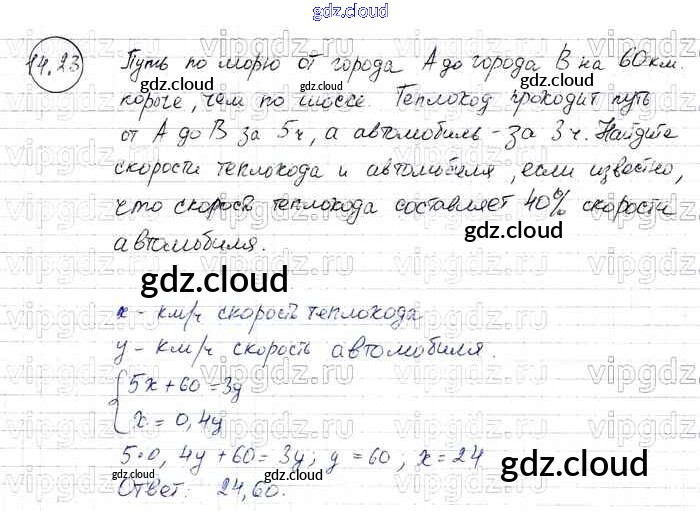 gdz.cloud
14.23 Путь по морю от города А до города В на 60 км.
короче, чем по шоссе. Теплоход проходит путь
от А до В за 5ч, а автомобиль - за 3 ч. Найдите
скорости теплохода и автомобиля, если известно,
что скорость теплохода составляет 40% скорости
автомобиля.
gdz.cloud
x - км/ч скорость теплохода
y - км/ч скорость автомобиля.
{5x+60=3y
x = 0,4y
5·0,4y+60=3y; y=60, x=24
Ответ: 24,60.
gdz.cloud
vipgdz.ru